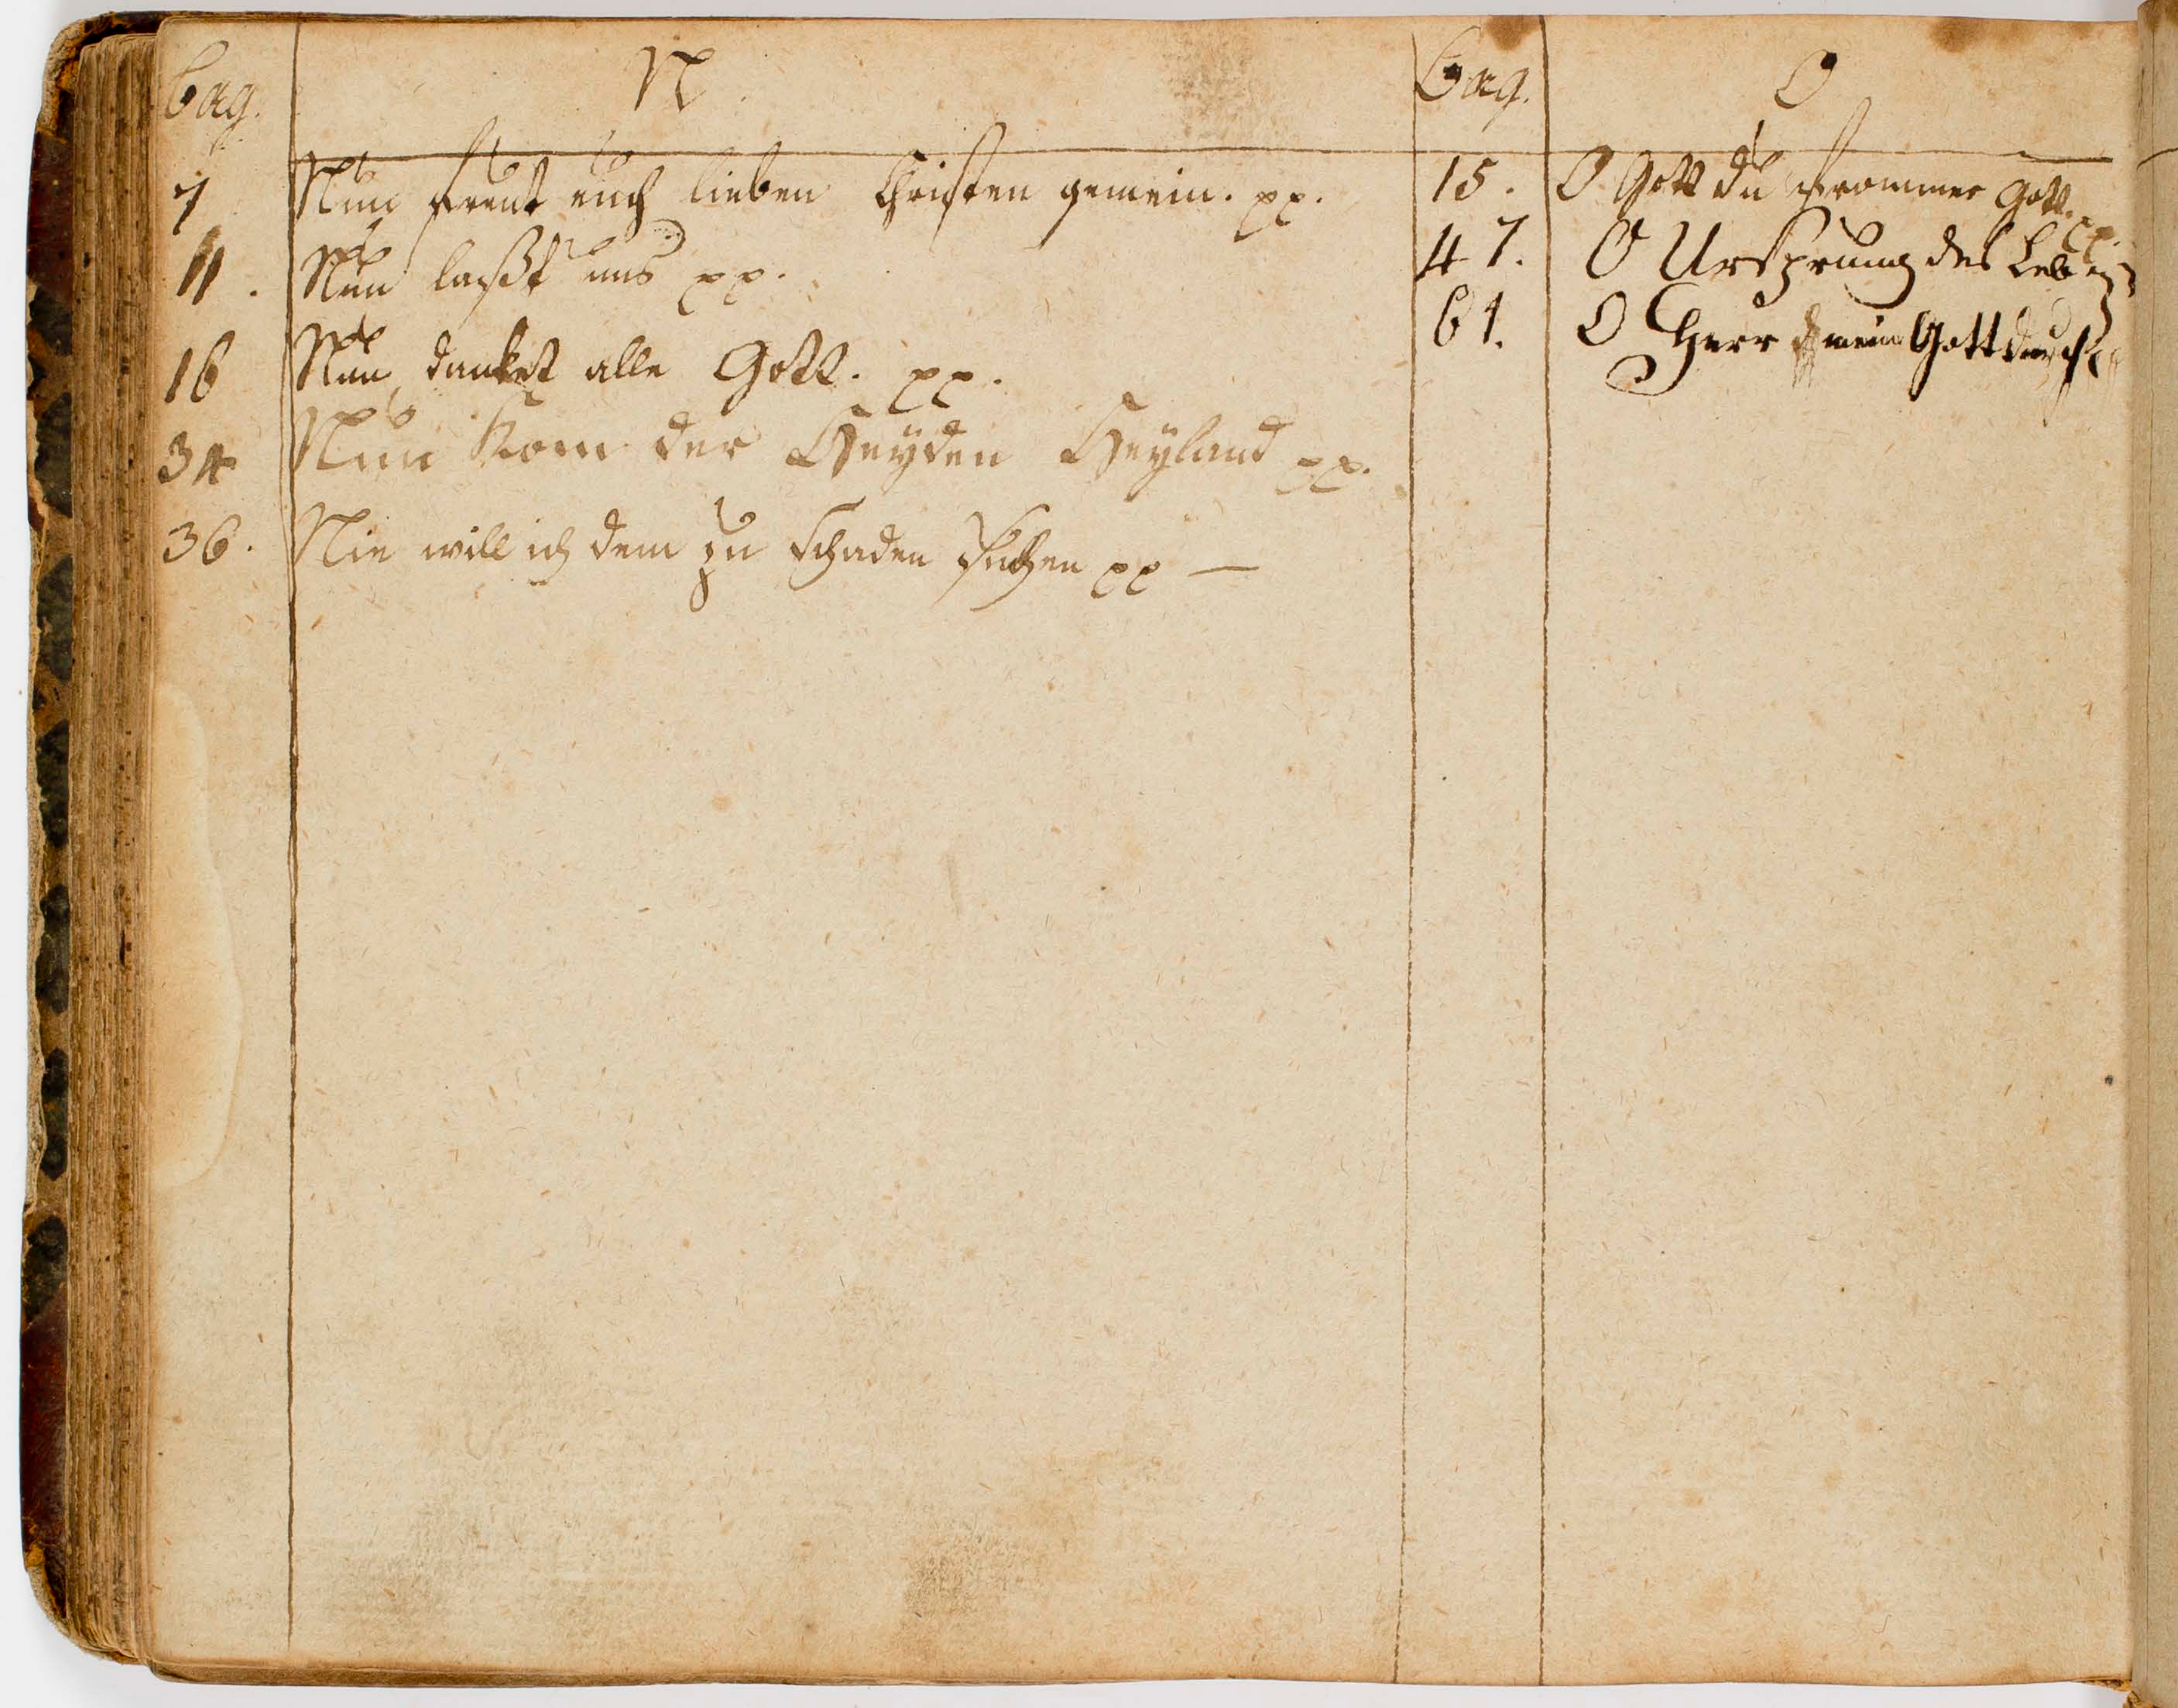 pag. N.
7 Nun freut euch lieben Christen gemein. pp.
11. Nun laßt uns pp.
16 Nun danket alle Gott. pp.
34 Nun kom der Heyden Heyland pp.
36. Nie will ich dem zu schaden suchen pp —
pag. O
15. O Gott du frommer Gott. pp.
47. O Ursprung des Leben
61. O Herr mein Gott durch